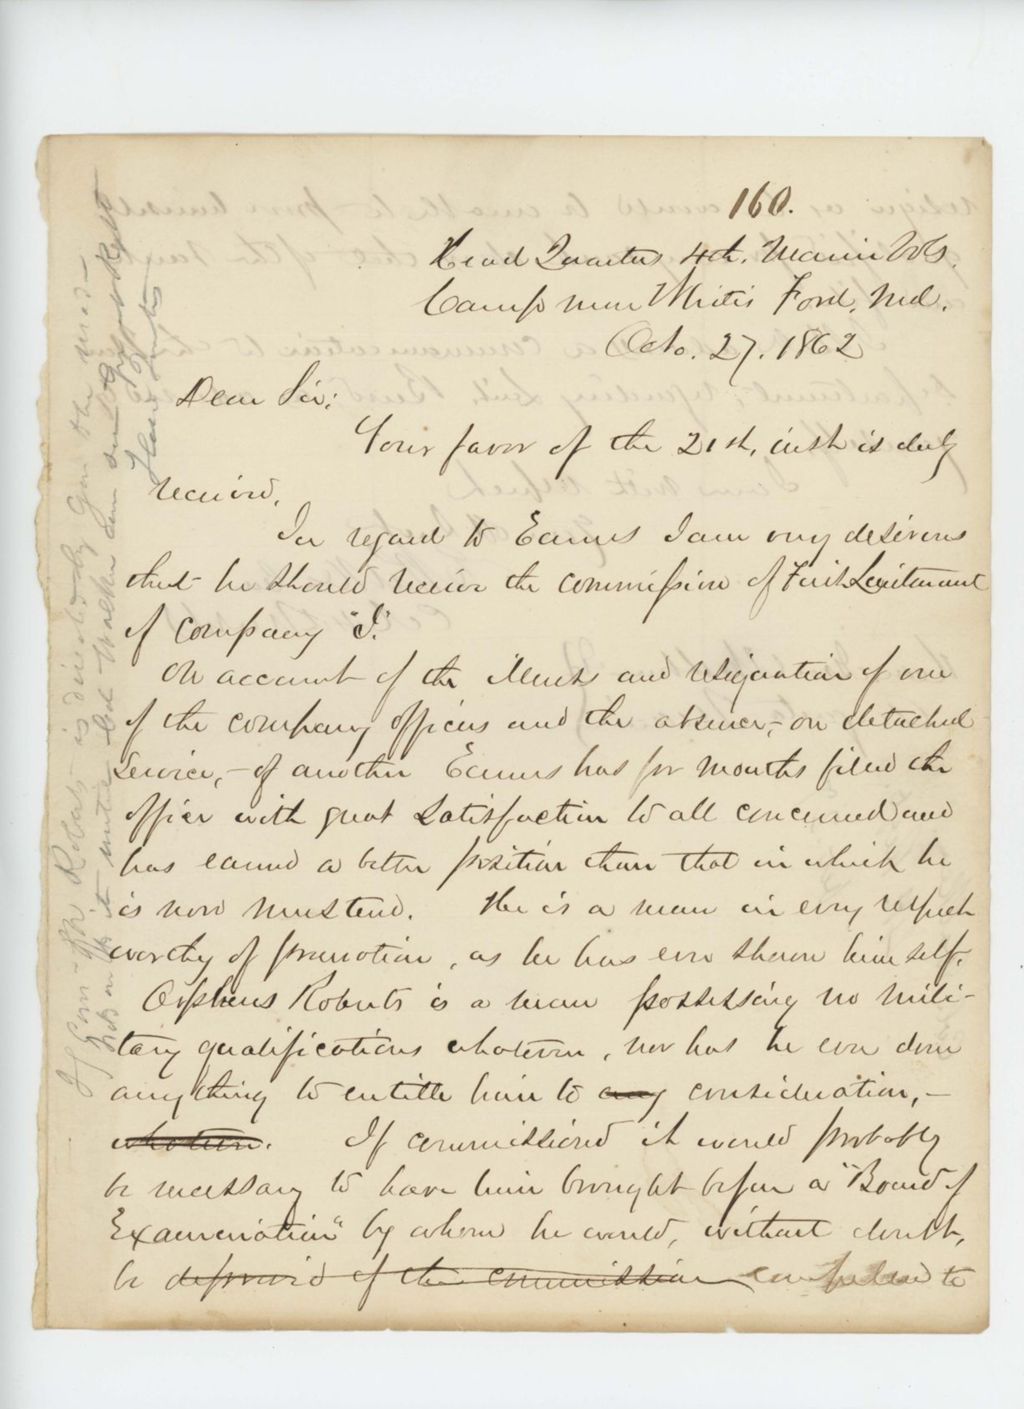 160.
Head Quarters 4th. Maine Vols.
Camp near Whites Ford, Md.
Octo. 27. 1862
Dear Sir:
Your favor of the 21st, inst is duly
received.
In regard to Eames I am very desirous
that he should receive the commission of First Lieutenant
of company "I."
On account of the illness and resignation of one
of the company officers and the absence,- on detached
service,- of another Eames has for months filled the
office with great satisfaction to all concerned and
has earned a better position than that in which he
is now mustered. He is a man in every respect
worthy of promotion, as he has ever shown himself.
Orpheus Roberts is a man possessing no mili-
tary qualifications whatever, nor has he ever done
anything to entitle him to any consideration,-
whatever. If commissioned it would probably
be necessary to have him brought before a "Board of
Examination" by whom he would, without doubt,
be deprived of the commission compelled to
If Com- of Roberts is directed by Gov the mus-
it Walker